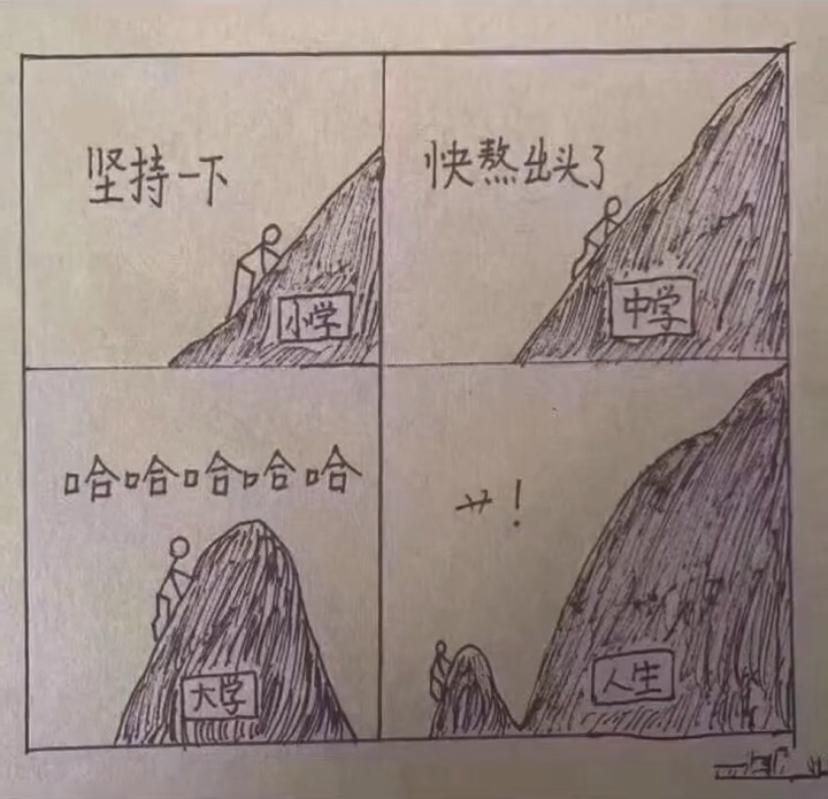 坚持一下
小学
快熬出头了
中学
哈哈哈哈哈
大学
艹！
人生